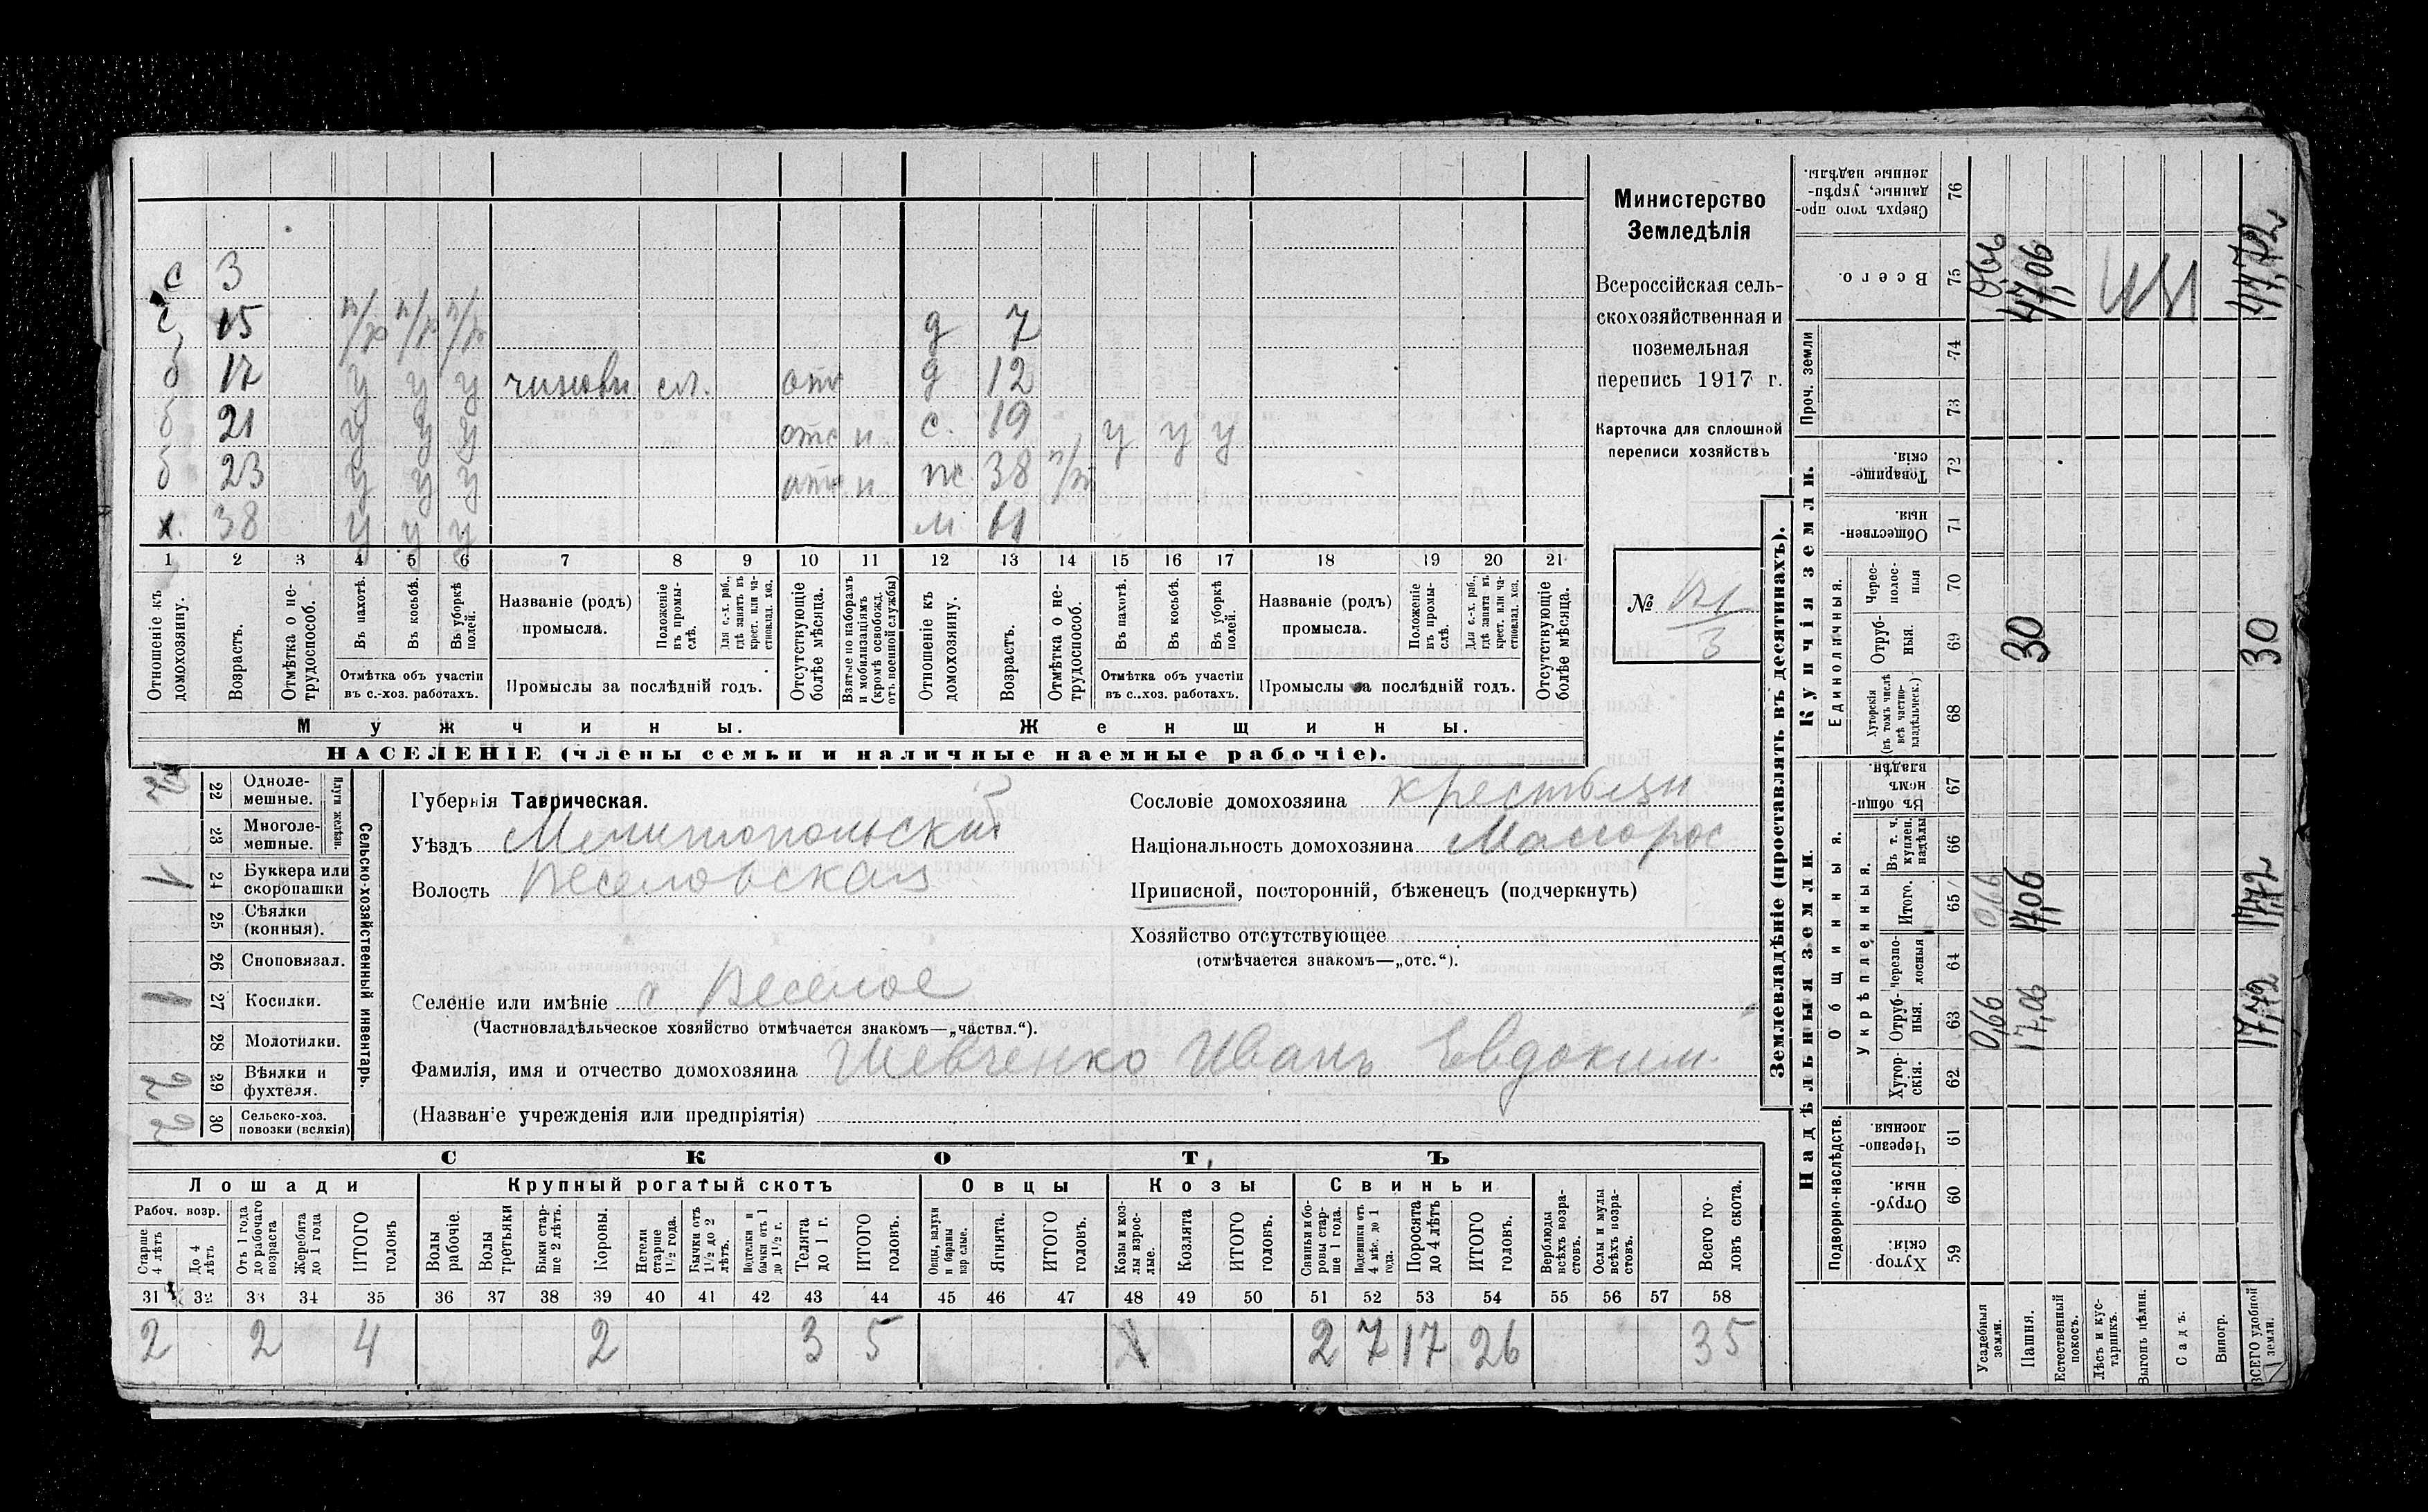 с 3
с 15 н/р н/р н/р д 7
б 17 у у у сл. отс д 12
б 21 у у у отс н с. 19 у у у
б 23 у у у отс н ж. 38 н/т
х. 38 у у у м 61
1 2 3 4 5 6 7 8 9 10 11 12 13 14 15 16 17 18 19 20 21
Отношеніе къ домохозяину.
Возрастъ.
Отмѣтка о нетрудоспособ.
Въ пахотѣ.
Въ косьбѣ.
Въ уборкѣ полей.
Отмѣтка объ участіи въ с.-хоз. работахъ.
Названіе (родъ) промысла.
Положеніе въ промыслѣ.
Для с.-х. раб., гдѣ занятъ въ крест. или частновлад. хоз.
Промыслы за послѣдній годъ.
Отсутствующіе болѣе мѣсяца.
Взятые по наборамъ и мобилизаціямъ (кромѣ освобожд. отъ военной службы)
Отношеніе къ домохозяину.
Возрастъ.
Отмѣтка о нетрудоспособ.
Въ пахотѣ.
Въ косьбѣ.
Въ уборкѣ полей.
Отмѣтка объ участіи въ с.-хоз. работахъ.
Названіе (родъ) промысла.
Положеніе въ промыслѣ.
Для с.-х. раб., гдѣ занята въ крест. или частновлад. хоз.
Промыслы за послѣдній годъ.
Отсутствующіе болѣе мѣсяца.
Мужчины. Женщины.
НАСЕЛЕНІЕ (члены семьи и наличные наемные рабочіе).
Министерство
Земледѣлія
Всероссійская сель-
скохозяйственная и
поземельная
перепись 1917 г.
Карточка для сплошной
переписи хозяйствъ
№ 171/3
Сельско-хозяйственный инвентарь.
Плуги желѣзн.
22 Одноле-
мешные.
23 Многоле-
мешные.
1 24 Буккера или
скоропашки
25 Сѣялки
(конныя).
26 Сноповязал.
1 27 Косилки.
28 Молотилки.
2 29 Вѣялки и
фухтеля.
2 30 Сельско-хоз.
повозки (всякія)
Губернія Таврическая.
Уѣздъ Мелитопольскій
Волость Веселовская
Селеніе или имѣніе с Веселое
(Частновладѣльческое хозяйство отмѣчается знакомъ—„частвл.“).
Фамилія, имя и отчество домохозяина Шевченко Иванъ Евдоким.
(Названіе учрежденія или предпріятія)
Сословіе домохозяина крестьян
Національность домохозяина Малорос
Приписной, посторонній, бѣженецъ (подчеркнуть)
Хозяйство отсутствующее
(отмѣчается знакомъ—„отс.“).
СКОТЪ
Лошади Крупный рогатый скотъ Овцы Козы Свиньи
Рабоч. возр.
Старше 4 лѣтъ
До 4 лѣтъ
Отъ 1 года до рабочаго возраста
Жеребята до 1 года
ИТОГО головъ
Волы рабочіе.
Волы третьяки
Быки старше 2 лѣтъ.
Коровы.
Нетели старше 1½ года.
Бычки отъ 1½ до 2 лѣтъ.
Подтелки и бычки отъ 1 до 1½ г.
Телята до 1 г.
ИТОГО головъ.
Овцы, валухи и бараны взрослые.
Ягнята.
ИТОГО головъ.
Козы и козлы взрослые.
Козлята
ИТОГО головъ.
Свиньи и боровы старше 1 года.
Подсвинки отъ 4 мѣс. до 1 года.
Поросята до 4 лѣтъ
ИТОГО головъ.
Верблюды всѣхъ возрастовъ.
Ослы и мулы всѣхъ возрастовъ.
Всего головъ скота.
31 32 33 34 35 36 37 38 39 40 41 42 43 44 45 46 47 48 49 50 51 52 53 54 55 56 57 58
2 2 4 2 3 5 2 7 17 26 35
Землевладѣніе (проставлять въ десятинахъ).
Надѣльныя земли. Купчія земли.
Подворно-наслѣдств.
Общинныя.
Укрѣпленныя.
Единоличныя.
Проч. земли
Сверхъ того проданные, укрѣпленные надѣлы. 76
Всего. 75 0,66 47,06 47,72
74
73
Товарищескія. 72
Общественныя. 71
Черезполосныя 70
Отрубныя. 69 30 30
Хуторскія (въ томъ числѣ всѣ частновладѣльческ.) 68
Въ общинномъ владѣн. 67
Въ т. ч. куплен. надѣлы 66
Итого. 65 0,66 17,06 17,72
черезполосныя 64
Отрубныя. 63 0,66 17,06 17,72
Хуторскія. 62
Черезполосныя 61
Отрубныя. 60
Хуторскія. 59
Усадебныя земли.
Пашня.
Естественный покосъ.
Лѣсъ и кустарникъ.
Выгонъ цѣлин.
Садъ.
Виногр.
ВСЕГО удобной земли.